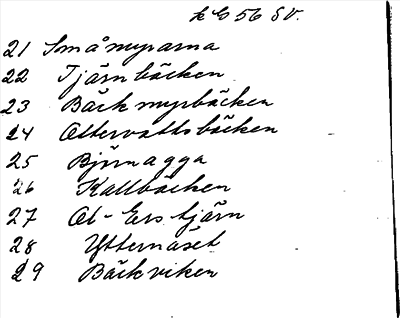 56 SV.
21 Småmyrarna
22 Tjärnbäcken
23 Bäckmyrbäcken
24 Ottervattsbäcken
25 Björnagga
26 Kallbäcken
27 Ol-Ers tjärn
28 Ytternäset
29 Bäckviken